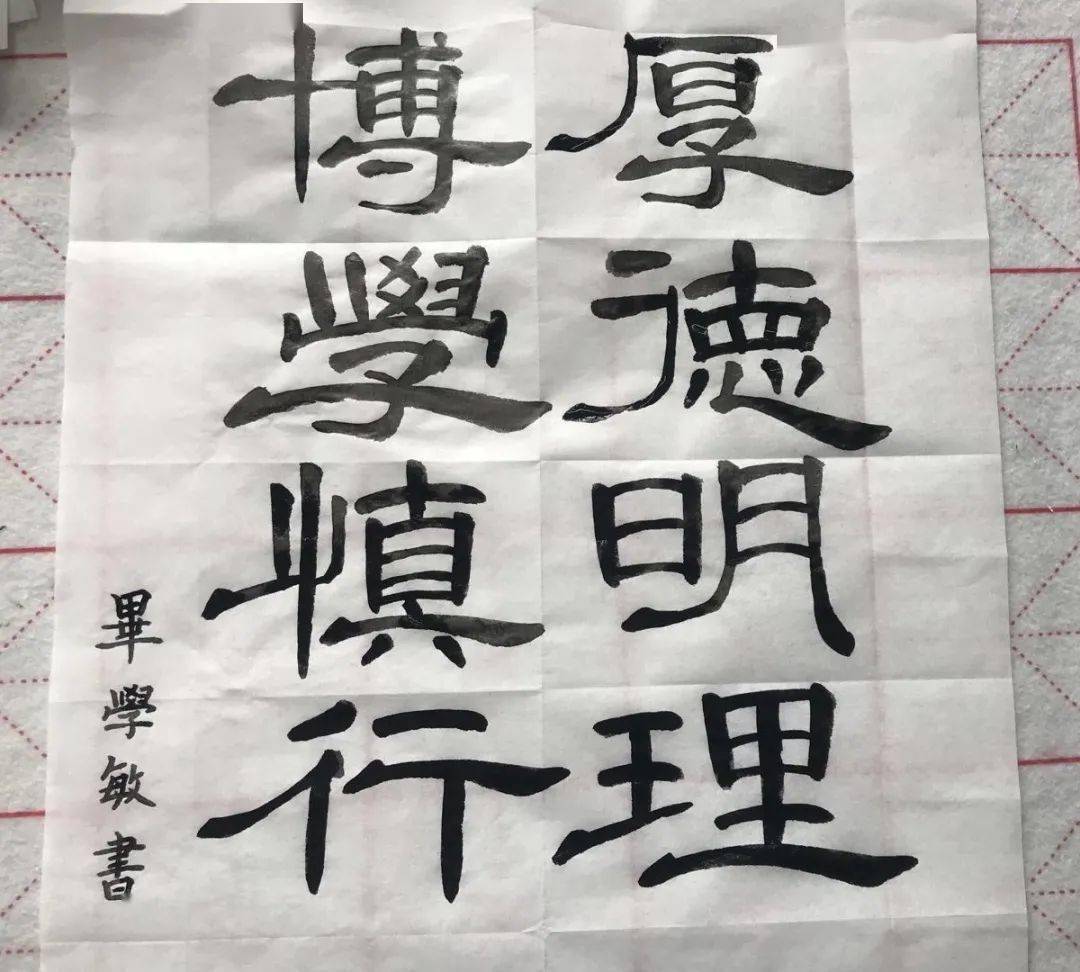 厚德明理
博學慎行
畢學敏書